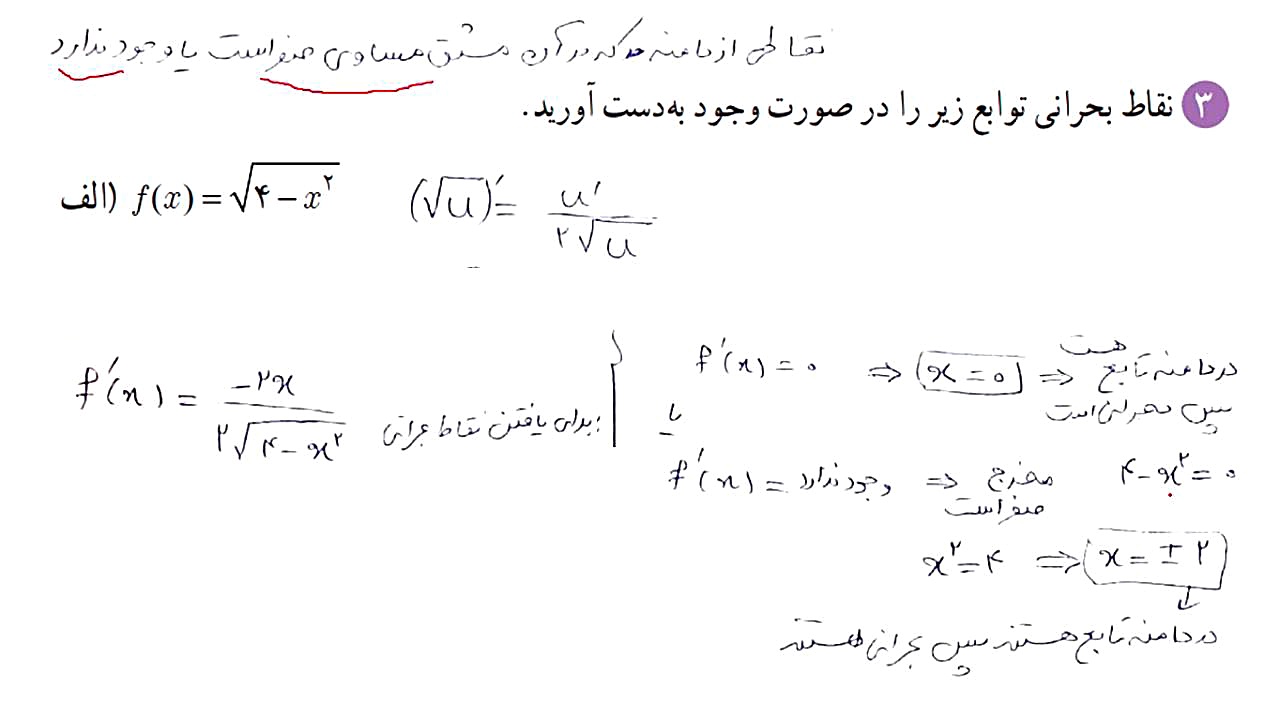 نقاطی از دامنه که در آن مشتق مساوی صفر است یا وجود ندارد
۳ نقاط بحرانی توابع زیر را در صورت وجود به‌دست آورید.
الف) f(x) = √۴ − x^۲    (√u)′ = u′ / ۲√u
f′(x) = −۲x / ۲√۴ − x^۲
برای یافتن نقاط بحرانی:
f′(x) = ۰ ⇒ x = ۰ ⇒ در دامنه تابع هست
پس بحرانی است
یا
f′(x) = وجود ندارد ⇒ مخرج صفر است ۴ − x^۲ = ۰
x^۲ = ۴ ⇒ x = ± ۲
در دامنه تابع هستند پس بحرانی هستند